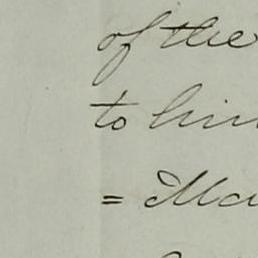 of the
to him
= Ma